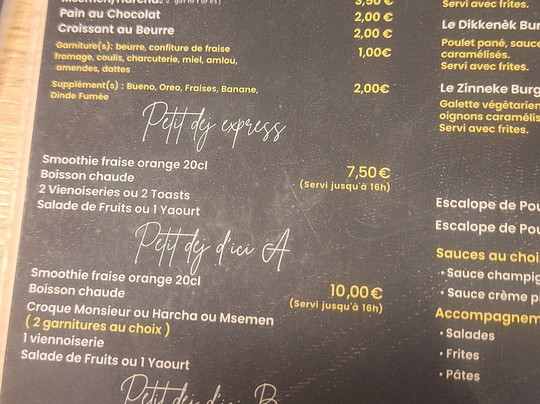 3,50 €
Pain au Chocolat 2,00 €
Croissant au Beurre 2,00 €
Garniture(s): beurre, confiture de fraise 1,00€
fromage, coulis, charcuterie, miel, amlou,
amendes, dattes
Supplément(s) : Bueno, Oreo, Fraises, Banane, 2,00€
Dinde Fumée
Petit dej express
Smoothie fraise orange 20cl 7,50€
Boisson chaude (Servi jusqu'à 16h)
2 Vienoiseries ou 2 Toasts
Salade de Fruits ou 1 Yaourt
Petit dej d'ici A
Smoothie fraise orange 20cl 10,00€
Boisson chaude (Servi jusqu'à 16h)
Croque Monsieur ou Harcha ou Msemen
( 2 garnitures au choix )
1 viennoiserie
Salade de Fruits ou 1 Yaourt
Petit dej d'ici B
Servi avec frites.
Le Dikkenèk Bur
Poulet pané, sauce
caramélisés.
Servi avec frites.
Le Zinneke Burg
Galette végétarien
oignons caramélis
Servi avec frites.
Escalope de Pou
Escalope de Pou
Sauces au choi
• Sauce champig
• Sauce crème p
Accompagnem
• Salades
• Frites
• Pâtes